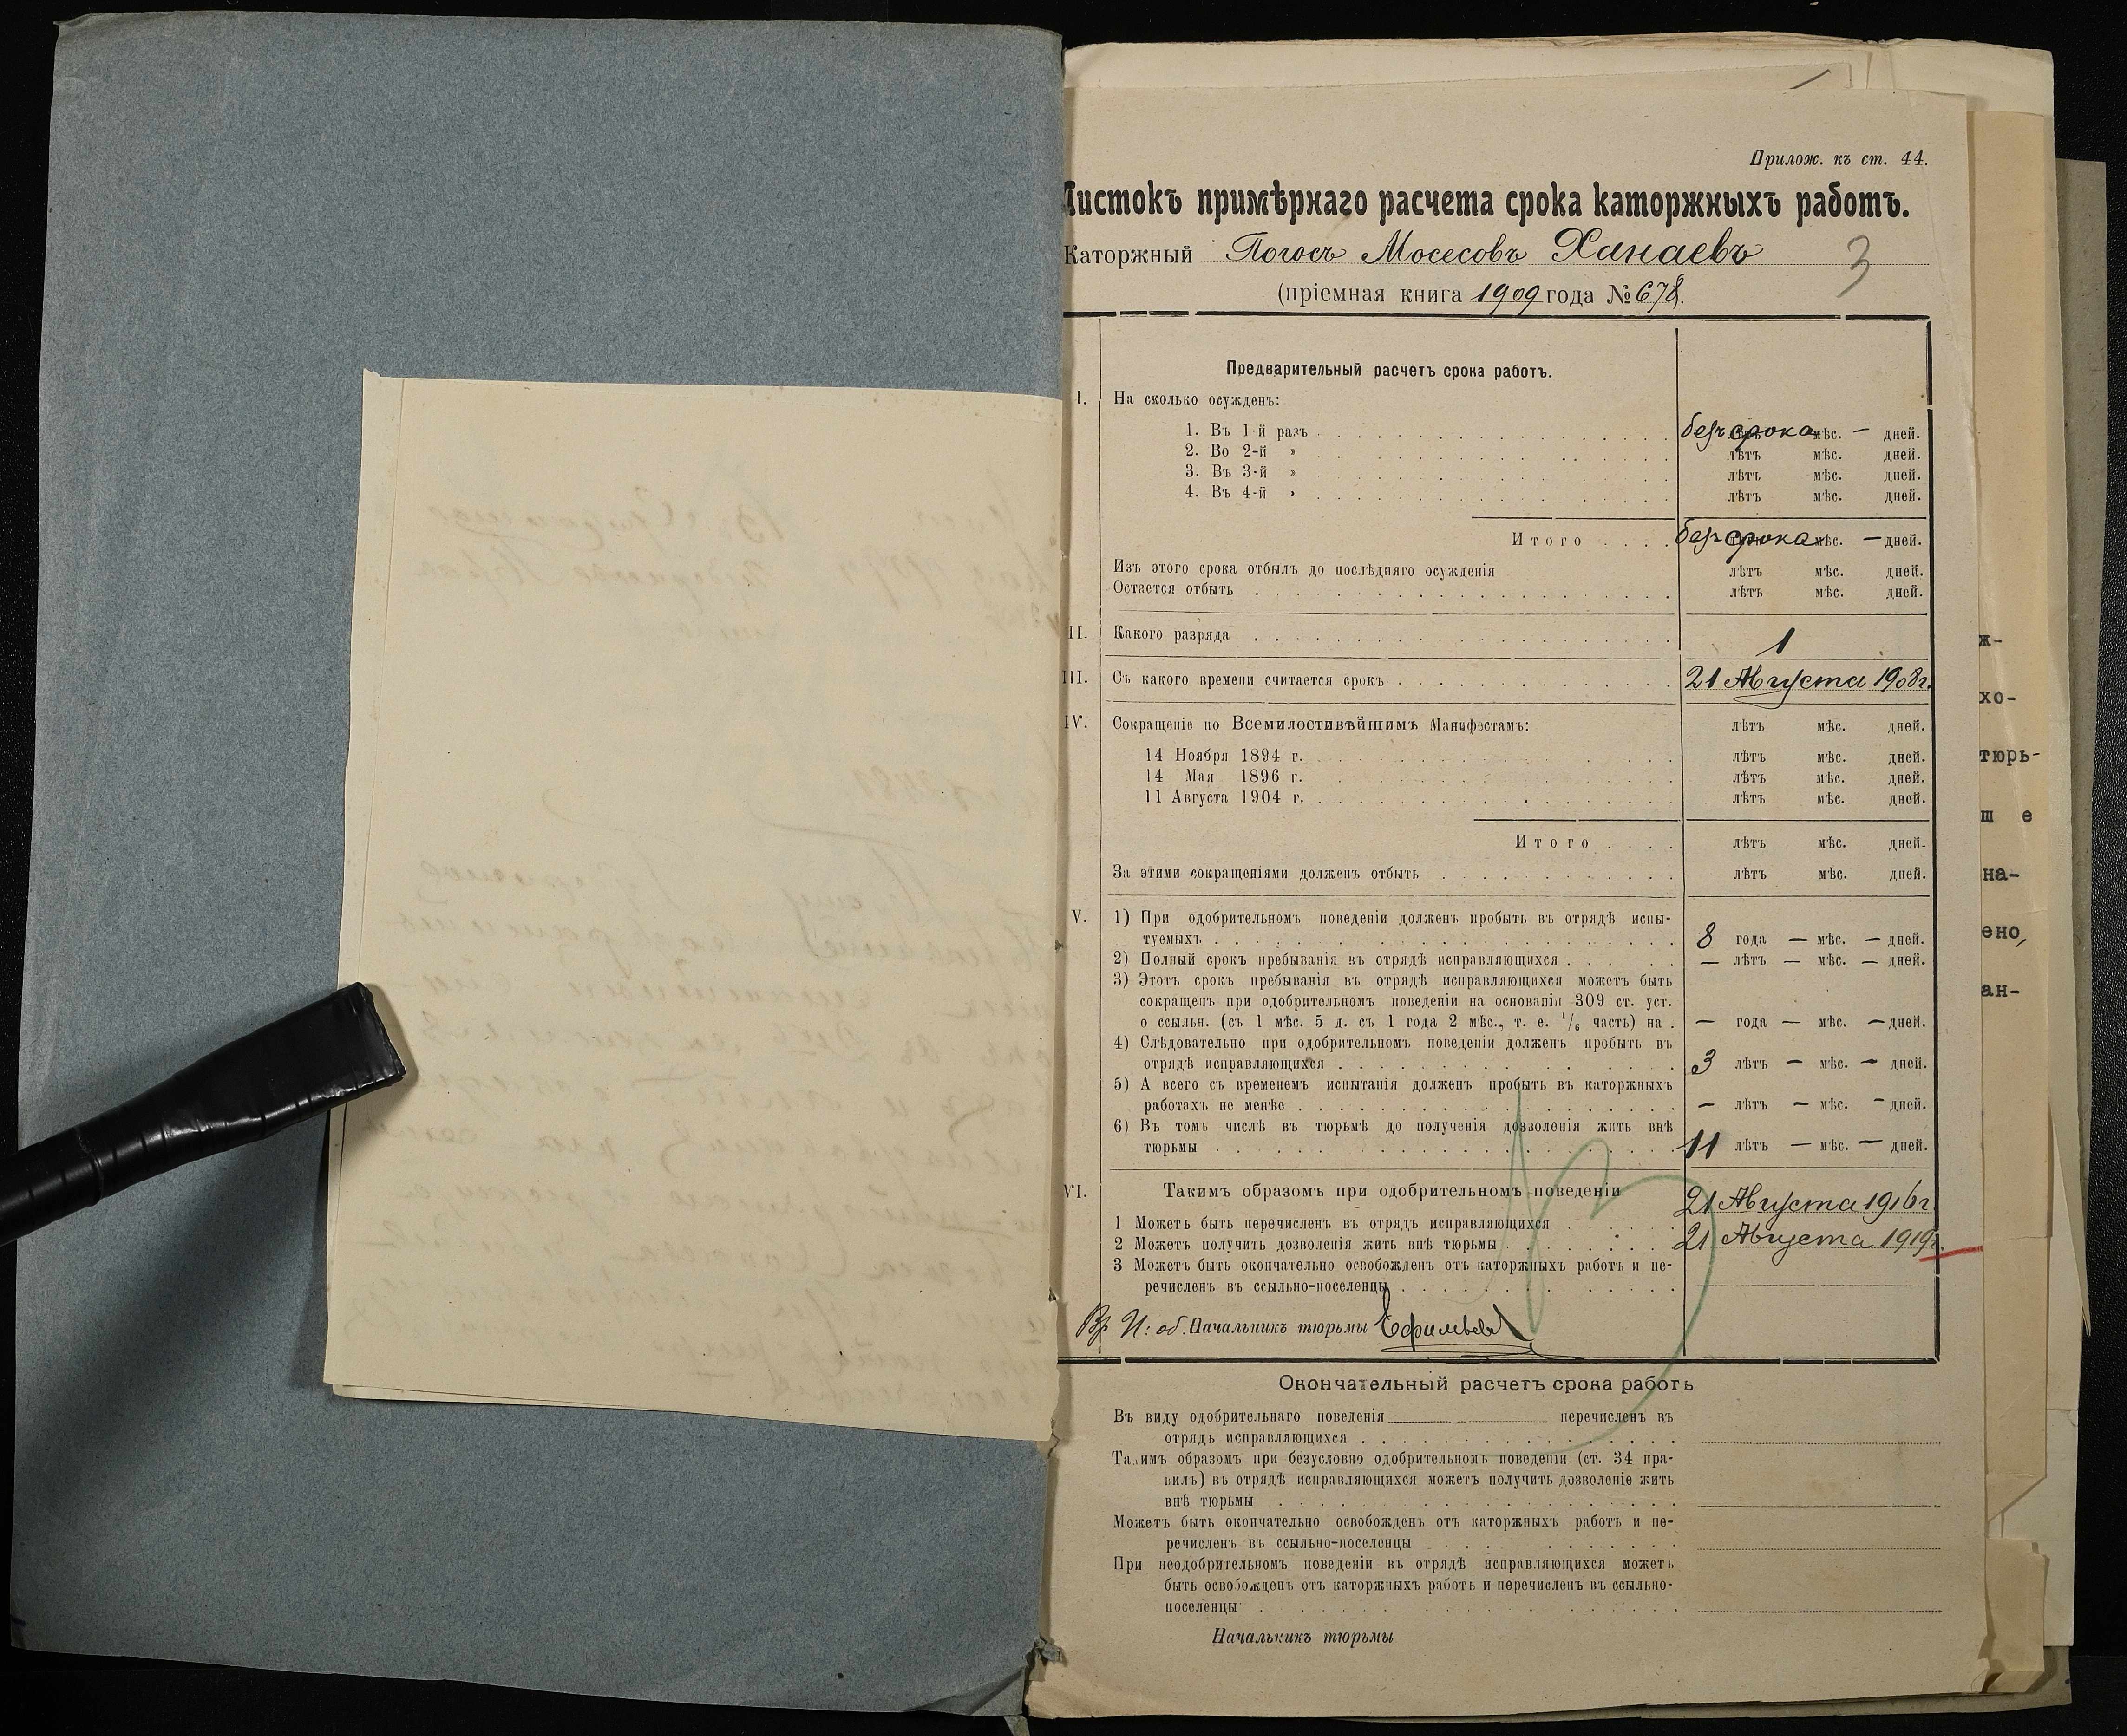 Прилож. къ ст. 44.
Листокъ примѣрнаго расчета срока каторжныхъ работъ.
Каторжный Погосъ Мосесовъ Ханаевъ
3
(пріемная книга 1909 года № 678.
Предварительный расчетъ срока работъ.
I. На сколько осужденъ:
1. Въ 1-й разъ безъ срока мѣс. — дней.
2. Во 2-й » лѣтъ мѣс. дней.
3. Въ 3-й » лѣтъ мѣс. дней.
4. Въ 4-й » лѣтъ мѣс. дней.
Итого безъ срока мѣс. — дней.
Изъ этого срока отбылъ до послѣдняго осужденія лѣтъ мѣс. дней.
Остается отбыть лѣтъ мѣс. дней.
II. Какого разряда 1
III. Съ какого времени считается срокъ 21 Августа 1908 г.
IV. Сокращеніе по Всемилостивѣйшимъ Манифестамъ: лѣтъ мѣс. дней.
14 Ноября 1894 г. лѣтъ мѣс. дней.
14 Мая 1896 г. лѣтъ мѣс. дней.
11 Августа 1904 г. лѣтъ мѣс. дней.
Итого лѣтъ мѣс. дней.
За этими сокращеніями долженъ отбыть лѣтъ мѣс. дней.
V. 1) При одобрительномъ поведеніи долженъ пробыть въ отрядѣ испы-
туемыхъ 8 года — мѣс. — дней.
2) Полный срокъ пребыванія въ отрядѣ исправляющихся — лѣтъ — мѣс. — дней.
3) Этотъ срокъ пребыванія въ отрядѣ исправляющихся можетъ быть
сокращенъ при одобрительномъ поведеніи на основаніи 309 ст. уст.
о ссыльн. (съ 1 мѣс. 5 д. съ 1 года 2 мѣс., т. е. 1/6 часть) на — года — мѣс. — дней.
4) Слѣдовательно при одобрительномъ поведеніи долженъ пробыть въ
отрядѣ исправляющихся 3 лѣтъ — мѣс. — дней.
5) А всего съ временемъ испытанія долженъ пробыть въ каторжныхъ
работахъ не менѣе — лѣтъ — мѣс. — дней.
6) Въ томъ числѣ въ тюрьмѣ до полученія дозволенія жить внѣ
тюрьмы 11 лѣтъ — мѣс. — дней.
VI. Такимъ образомъ при одобрительномъ поведеніи
1 Можетъ быть перечисленъ въ отрядъ исправляющихся 21 Августа 1916 г.
2 Можетъ получить дозволенія жить внѣ тюрьмы 21 Августа 1919 г.
3 Можетъ быть окончательно освобожденъ отъ каторжныхъ работъ и пе-
речисленъ въ ссыльно-поселенцы
Вр. И. об. Начальникъ тюрьмы Ефимьев
Окончательный расчетъ срока работъ
Въ виду одобрительнаго поведенія перечисленъ въ
отрядъ исправляющихся
Такимъ образомъ при безусловно одобрительномъ поведеніи (ст. 34 пра-
вилъ) въ отрядѣ исправляющихся можетъ получить дозволеніе жить
внѣ тюрьмы
Можетъ быть окончательно освобожденъ отъ каторжныхъ работъ и пе-
речисленъ въ ссыльно-поселенцы
При неодобрительномъ поведеніи въ отрядѣ исправляющихся можетъ
быть освобожденъ отъ каторжныхъ работъ и перечисленъ въ ссыльно-
поселенцы
Начальникъ тюрьмы
ж-
хо-
тюрь-
ш е
на-
ено,
ан-